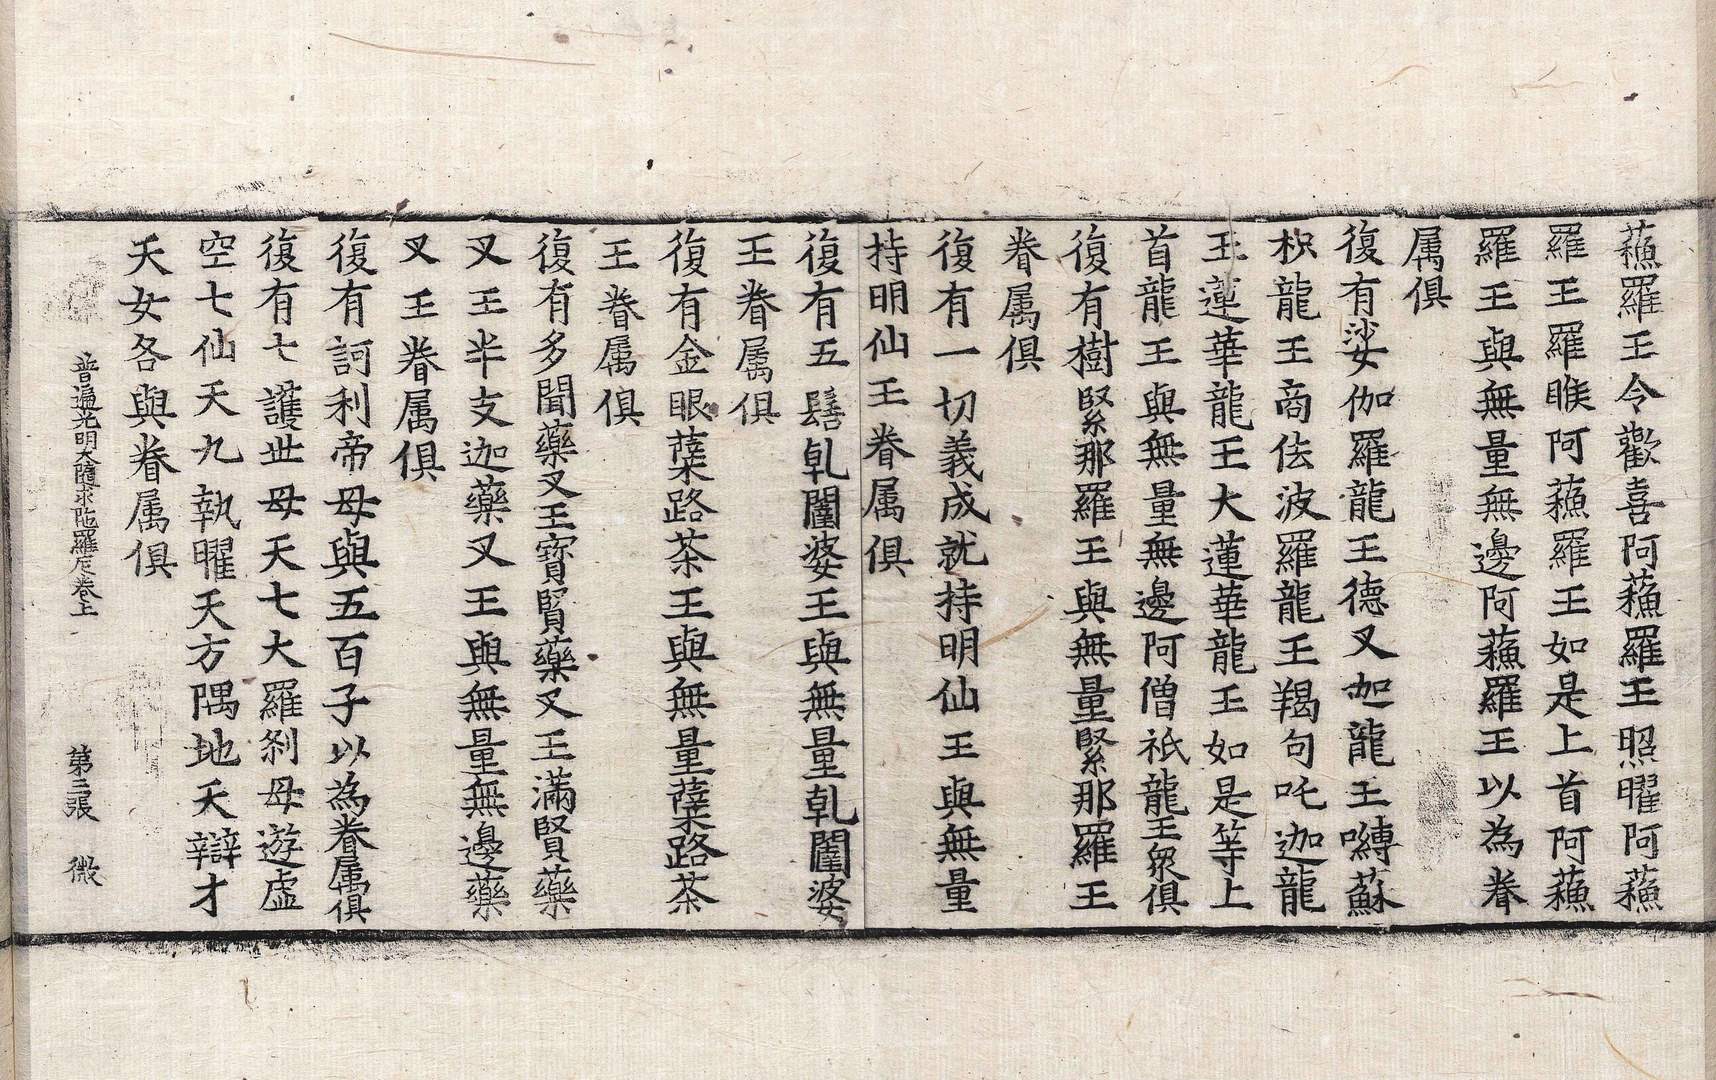 蘓羅王令歡喜阿蘓羅王照曜阿蘓
羅王羅睺阿蘓羅王如是上首阿蘓
羅王與無量無邊阿蘓羅王以為眷
属俱
復有娑伽羅龍王德叉迦龍王嚩蘇
枳龍王商佉波羅龍王羯句吒迦龍
王蓮華龍王大蓮華龍王如是等上
首龍王與無量無邊阿僧祇龍王衆俱
復有樹緊那羅王與無量緊那羅王
眷属俱
復有一切義成就持明仙王與無量
持明仙王眷属俱
復有五髻乹闥婆王與無量乹闥婆
王眷属俱
復有金眼蘖路茶王與無量蘖路茶
王眷属俱
復有多聞藥叉王寶賢藥叉王滿賢藥
叉王半支迦藥叉王與無量無邊藥
叉王眷属俱
復有訶利帝母與五百子以為眷属俱
復有七護世母天七大羅刹母遊虛
空七仙天九執曜天方隅地天辯才
天女各與眷属俱
普遍光明大隨求陁羅尼卷上 第三張 微